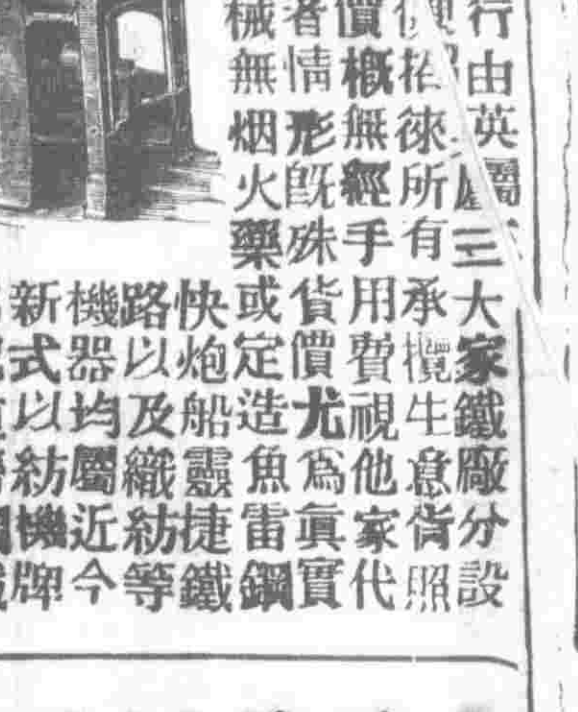 行由英屬三大家鐵廠分設
招徠所有承攬生意皆照
價概無經手用費視他家代
者情形旣殊貨價尤爲眞實
械無烟火藥或定造魚雷鋼
快炮船靈捷鐵
路以及織紡等
機器均屬近今
新式以紡機牌